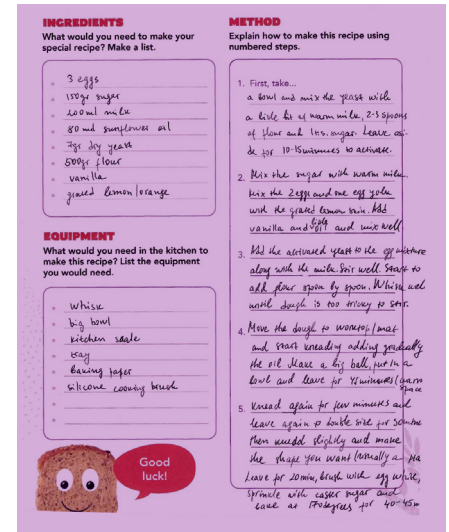 INGREDIENTS
What would you need to make your
special recipe? Make a list.
3 eggs
150gr sugar
200ml milk
80 ml sunflower oil
7gr dry yeast
500gr flour
vanilla
grated lemon/orange
EQUIPMENT
What would you need in the kitchen to
make this recipe? List the equipment
you would need.
whisk
big bowl
kitchen scale
tray
baking paper
silicone cooking brush
Good
luck!
METHOD
Explain how to make this recipe using
numbered steps.
1. First, take...
a bowl and mix the yeast with
a litle bit of warm milk, 2-3 spoons
of flour and 1ts. sugar. Leave asi-
de for 10-15 minutes to activate.
2. Mix the sugar with warm milk.
Mix the 2 eggs and one egg yolk
with the grated lemon skin. Add
vanilla and oil and mix well
3. Add the activated yeast to the egg mixture
along with the milk. Stir well. Start to
add flour spoon by spoon. Whisk well
until dough is too tricky to stir.
4. Move the dough to worktop/mat
and start kneading adding gradually
the oil. Make a big ball, put in a
bowl and leave for 45 minutes/warm
space
5. Knead again for few minutes and
leave again to double size for 30 min
then knead slightly and make
the shape you want (usually a
Leave for 20 min, brush with egg
sprinkle with caster sugar and
bake at 170 degrees for 40-45m